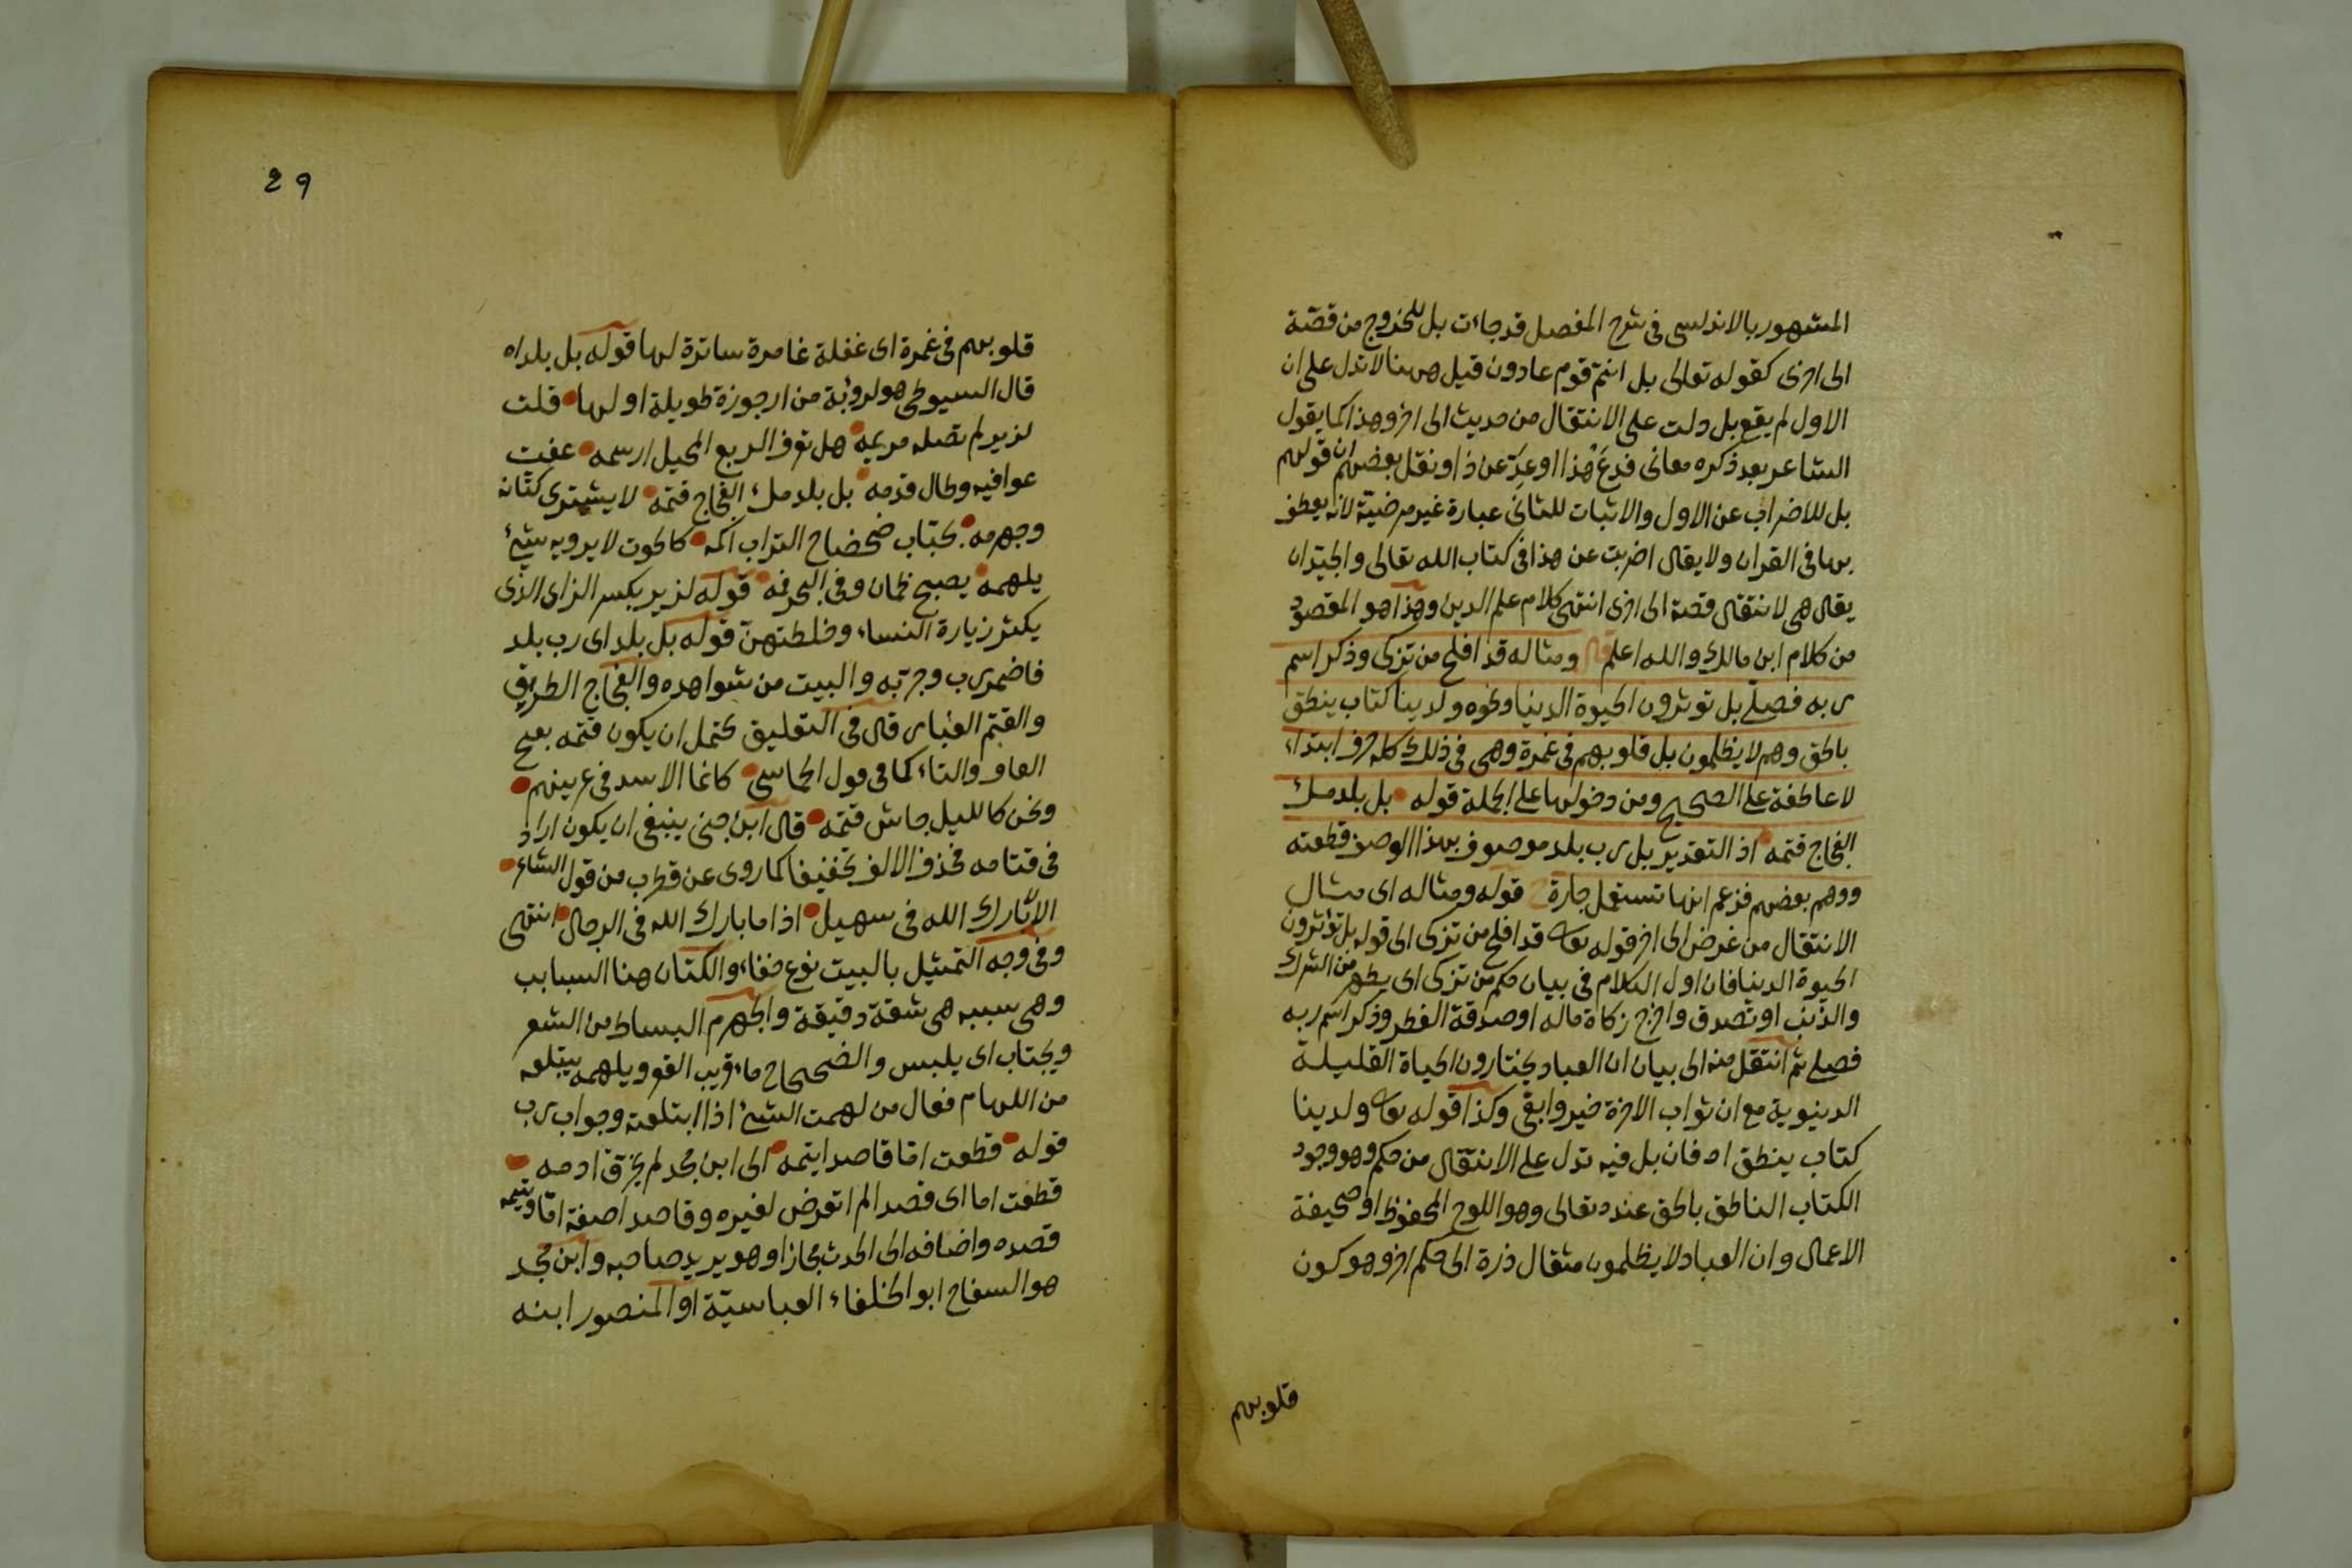 المشهور بالاندلسى فى شرح المفصل قد جاءت بل للخروج من قصّة
الى اخرى كقوله تعالى بل انتم قوم عادون قيل ههنا لا تدل على ان
الاول لم يقع بل دلت على الانتقال من حديث الى اخر وهذا كما يقول
الشاعر بعد ذكره معانى فدع هذا او عدّ عن ذا ونقل بعضهم ان قولهم
بل للاضراب عن الاول والاثبات للثانى عبارة غير مرضيّة لانه يعطف
بها فى القران ولا يقال اضربت عن هذا فى كتاب الله تعالى والجيّد ان
يقال هى لانتقال قصة الى اخرى انتهى كلام علم الدين وهذا هو المقصود
من كلام ابن مالك والله اعلم قال ومثاله قد افلح من تزكى وذكر اسم
ربه فصلى بل توثرون الحيوة الدنيا ونحوه ولدينا كتاب ينطق
بالحق وهم لا يظلمون بل قلوبهم فى غمرة وهى فى ذلك كله حرف ابتداء
لا عاطفة على الصحيح ومن دخولها على الجملة قوله بل بلد ملء
الفجاج قتمه اذ التقدير بل رب بلد موصوف بهذا الوصف قطعته
ووهم بعضهم فزعم انها تستعمل جارة قوله ومثاله اى مثال
الانتقال من غرض الى اخر قوله تعالى قد افلح من تزكى الى قوله بل تؤثرون
الحيوة الدنيا فان اول الكلام فى بيان حكم من تزكى اى يطهر من الشرك
والذنب او تصدق واخرج زكاة ماله او صدقة الفطر وذكر اسم ربه
فصلى ثم انتقل منه الى بيان ان العباد يختارون الحياة القليلة
الدنيوية مع ان ثواب الاخرة خير وابقى وكذا قوله تعالى ولدينا
كتاب ينطق اه فان بل فيه تدل على الانتقال من حكم وهو وجود
الكتاب الناطق بالحق عنده تعالى وهو اللوح المحفوظ او صحيفة
الاعمال وان العباد لا يظلمون مثقال ذرة الى حكم اخر وهو كون
قلوبهم
29
قلوبهم فى غمرة اى غفلة غامرة ساترة لها قوله بل بلد اه
قال السيوطى هو لروبة من ارجوزة طويلة اولها قلت
لزير لم تصله مريمه هل تعرف الربع المحيل ارسمه عفت
عوافيه وطال قدمه بل بلد ملء الفجاج قتمه لا يشترى كتانه
وجهرمه يجتاب ضحضاح التراب اكمه كالحوت لا يرويه شئ
يلهمه يصبح ظمان وفى البحر فمه قوله لزير بكسر الزاى الذى
يكثر زيارة النساء وخلطتهن قوله بل بلد اى رب بلد
فاضمر رب وجر به والبيت من شواهده والفجاج الطريق
والقتم الغبار قال فى التعليق يحتمل ان يكون قتمه بفتح
القاف والتاء كما فى قول الحماسى كانما الاسد فى عرينهم
ونحن كالليل جاش قتمه قال ابن جنى ينبغى ان يكون اراد
فى قتامه فحذف الالف تخفيفا كما روى عن قطرب من قول الشاعر
الا لا بارك الله فى سهيل اذا ما بارك الله فى الرجال انتهى
وفى وجه التمثيل بالبيت نوع خفاء والكتان هنا السبايب
وهى سببيه هى شقة دقيقة والجهرم البساط من الشعر
ويجتاب اى يلبس والضحضاح ماء قريب القعر ويلهمه يبتلعه
من اللهام فعال من لهمت الشئ اذا ابتلعته وجواب رب
قوله قطعت اما قاصدا يتمه الى ابن مجد لم يخرق ادمه
قطعت اما اى قصدا لم اتعرض لغيره وقاصدا صفة اما ويتمه
قصده واضافه الى الحدث مجازا وهو يريد صاحبه وابن مجد
هو السفاح ابو الخلفاء العباسيّة او المنصور ابنه